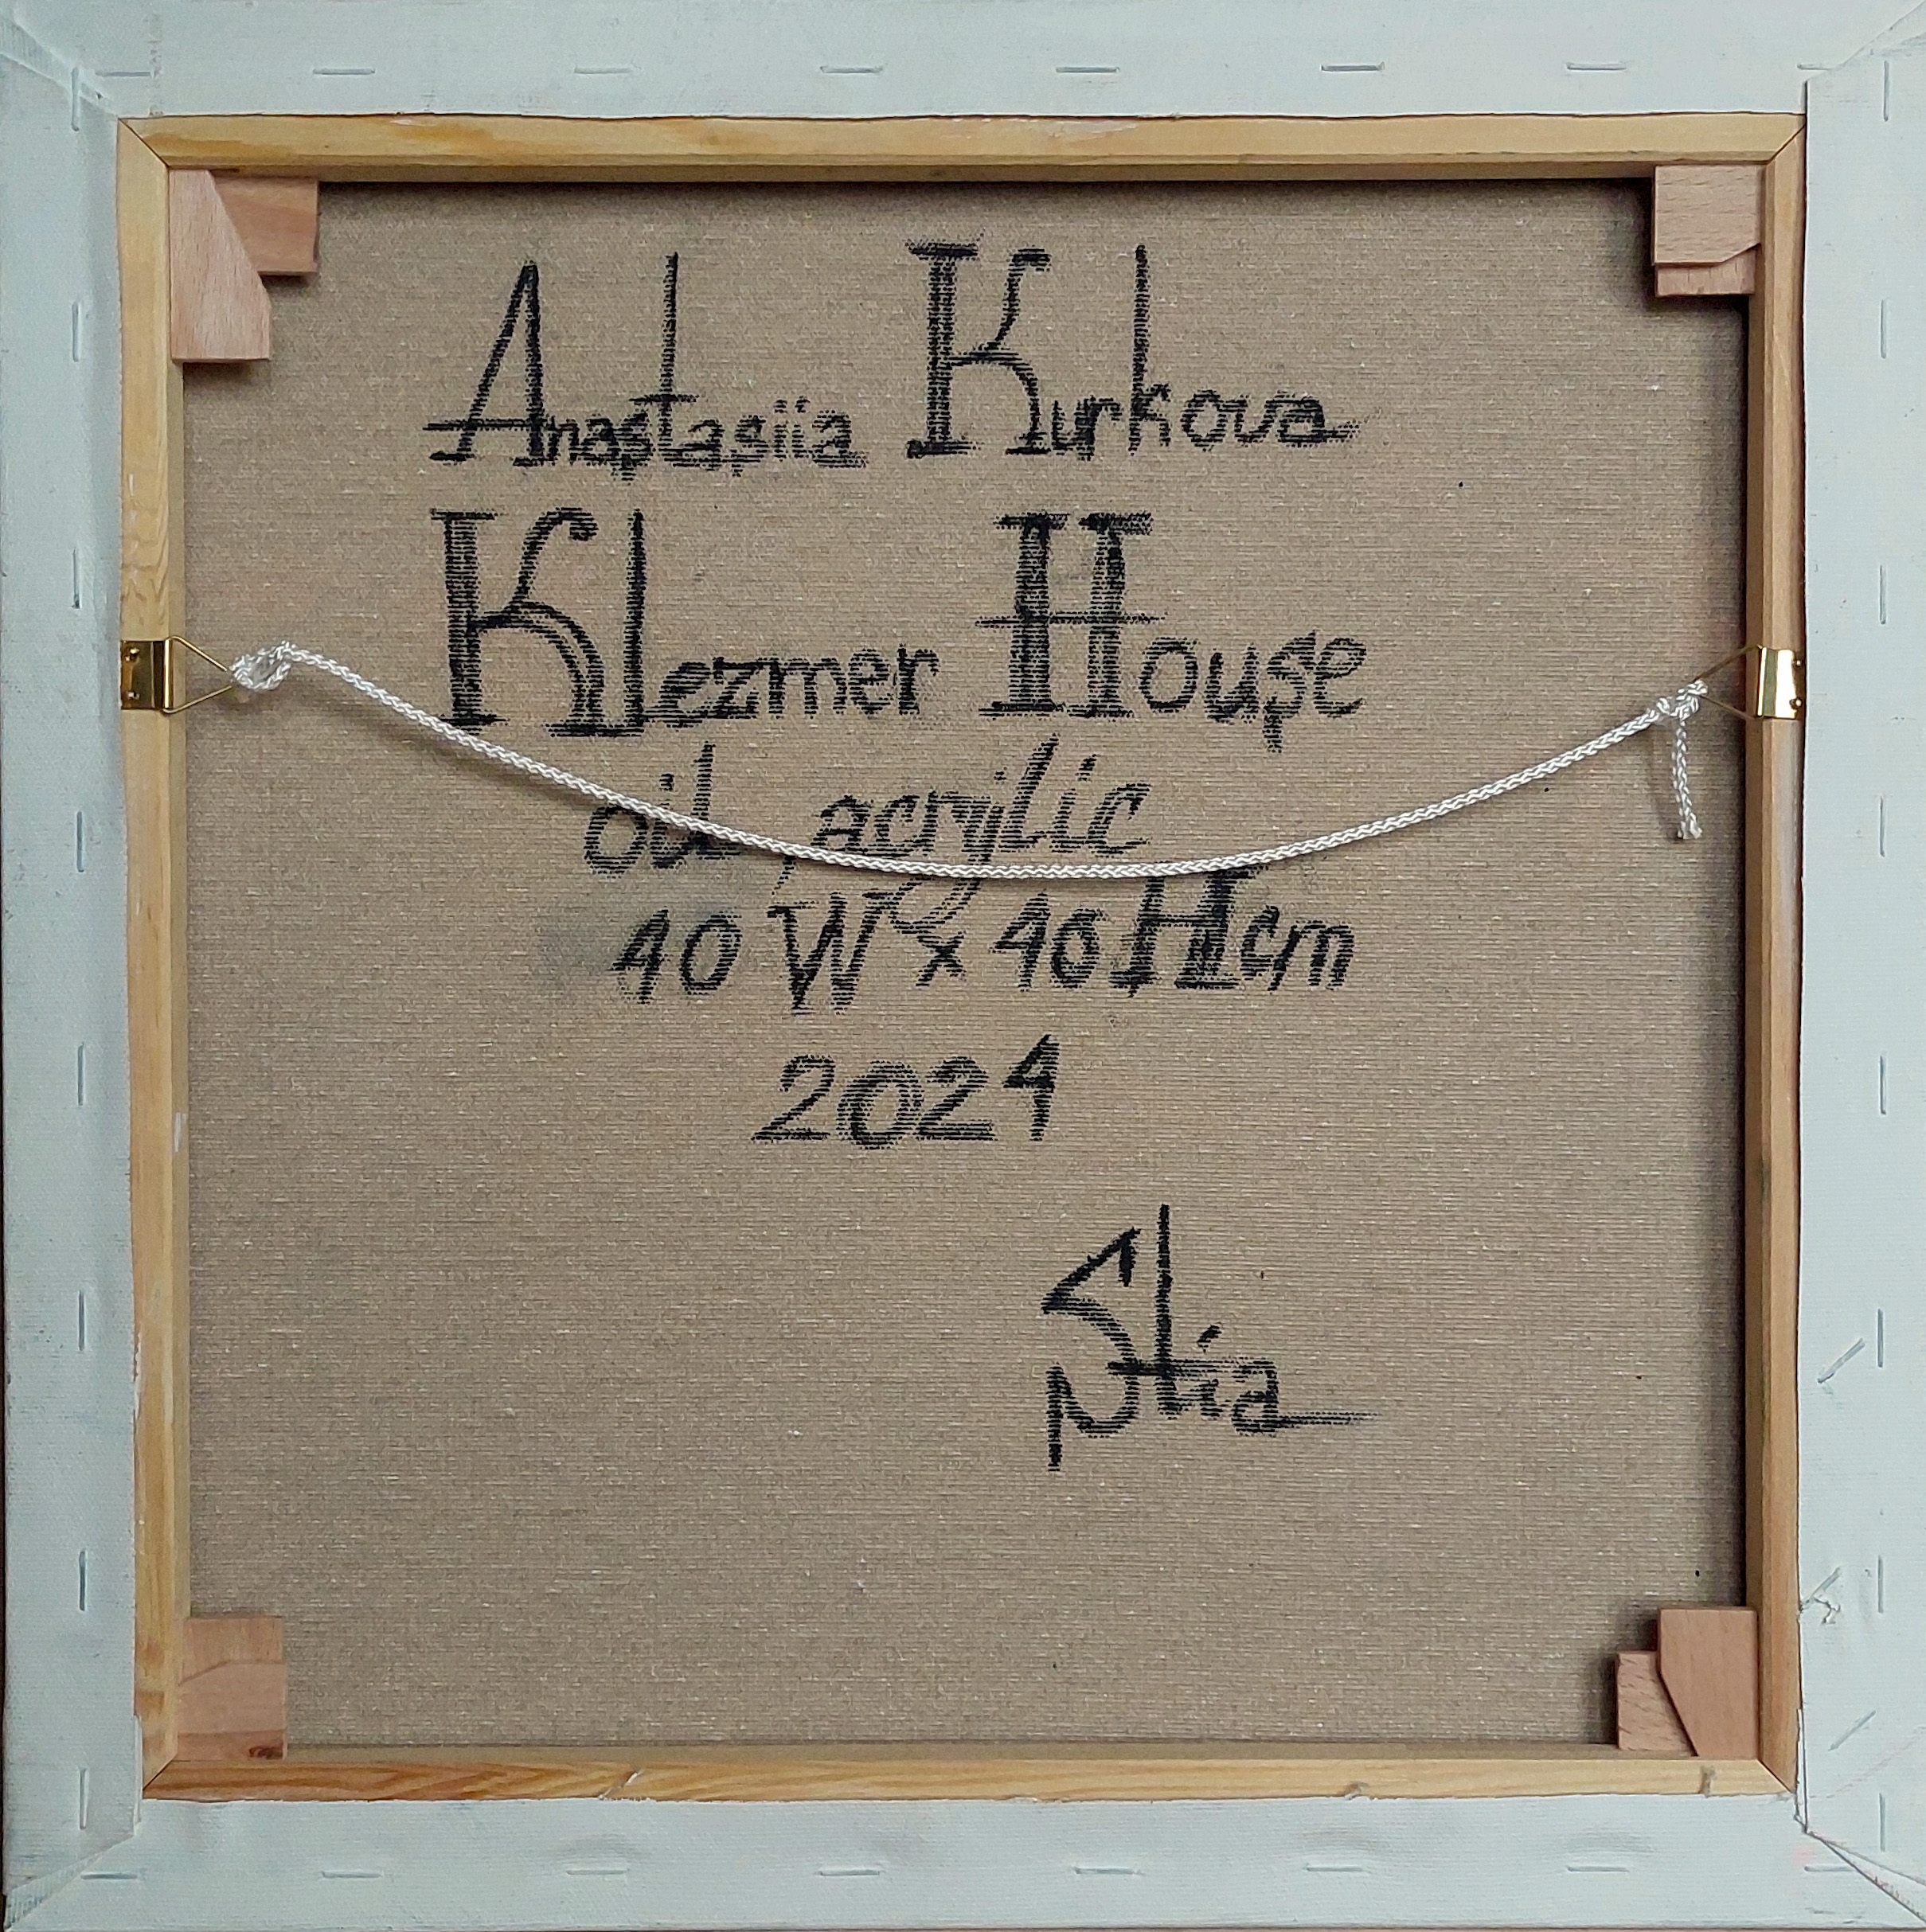 Anastasiia Kurkova
Klezmer House
oil, acrylic
40 W x 40 H cm
2024
Stia